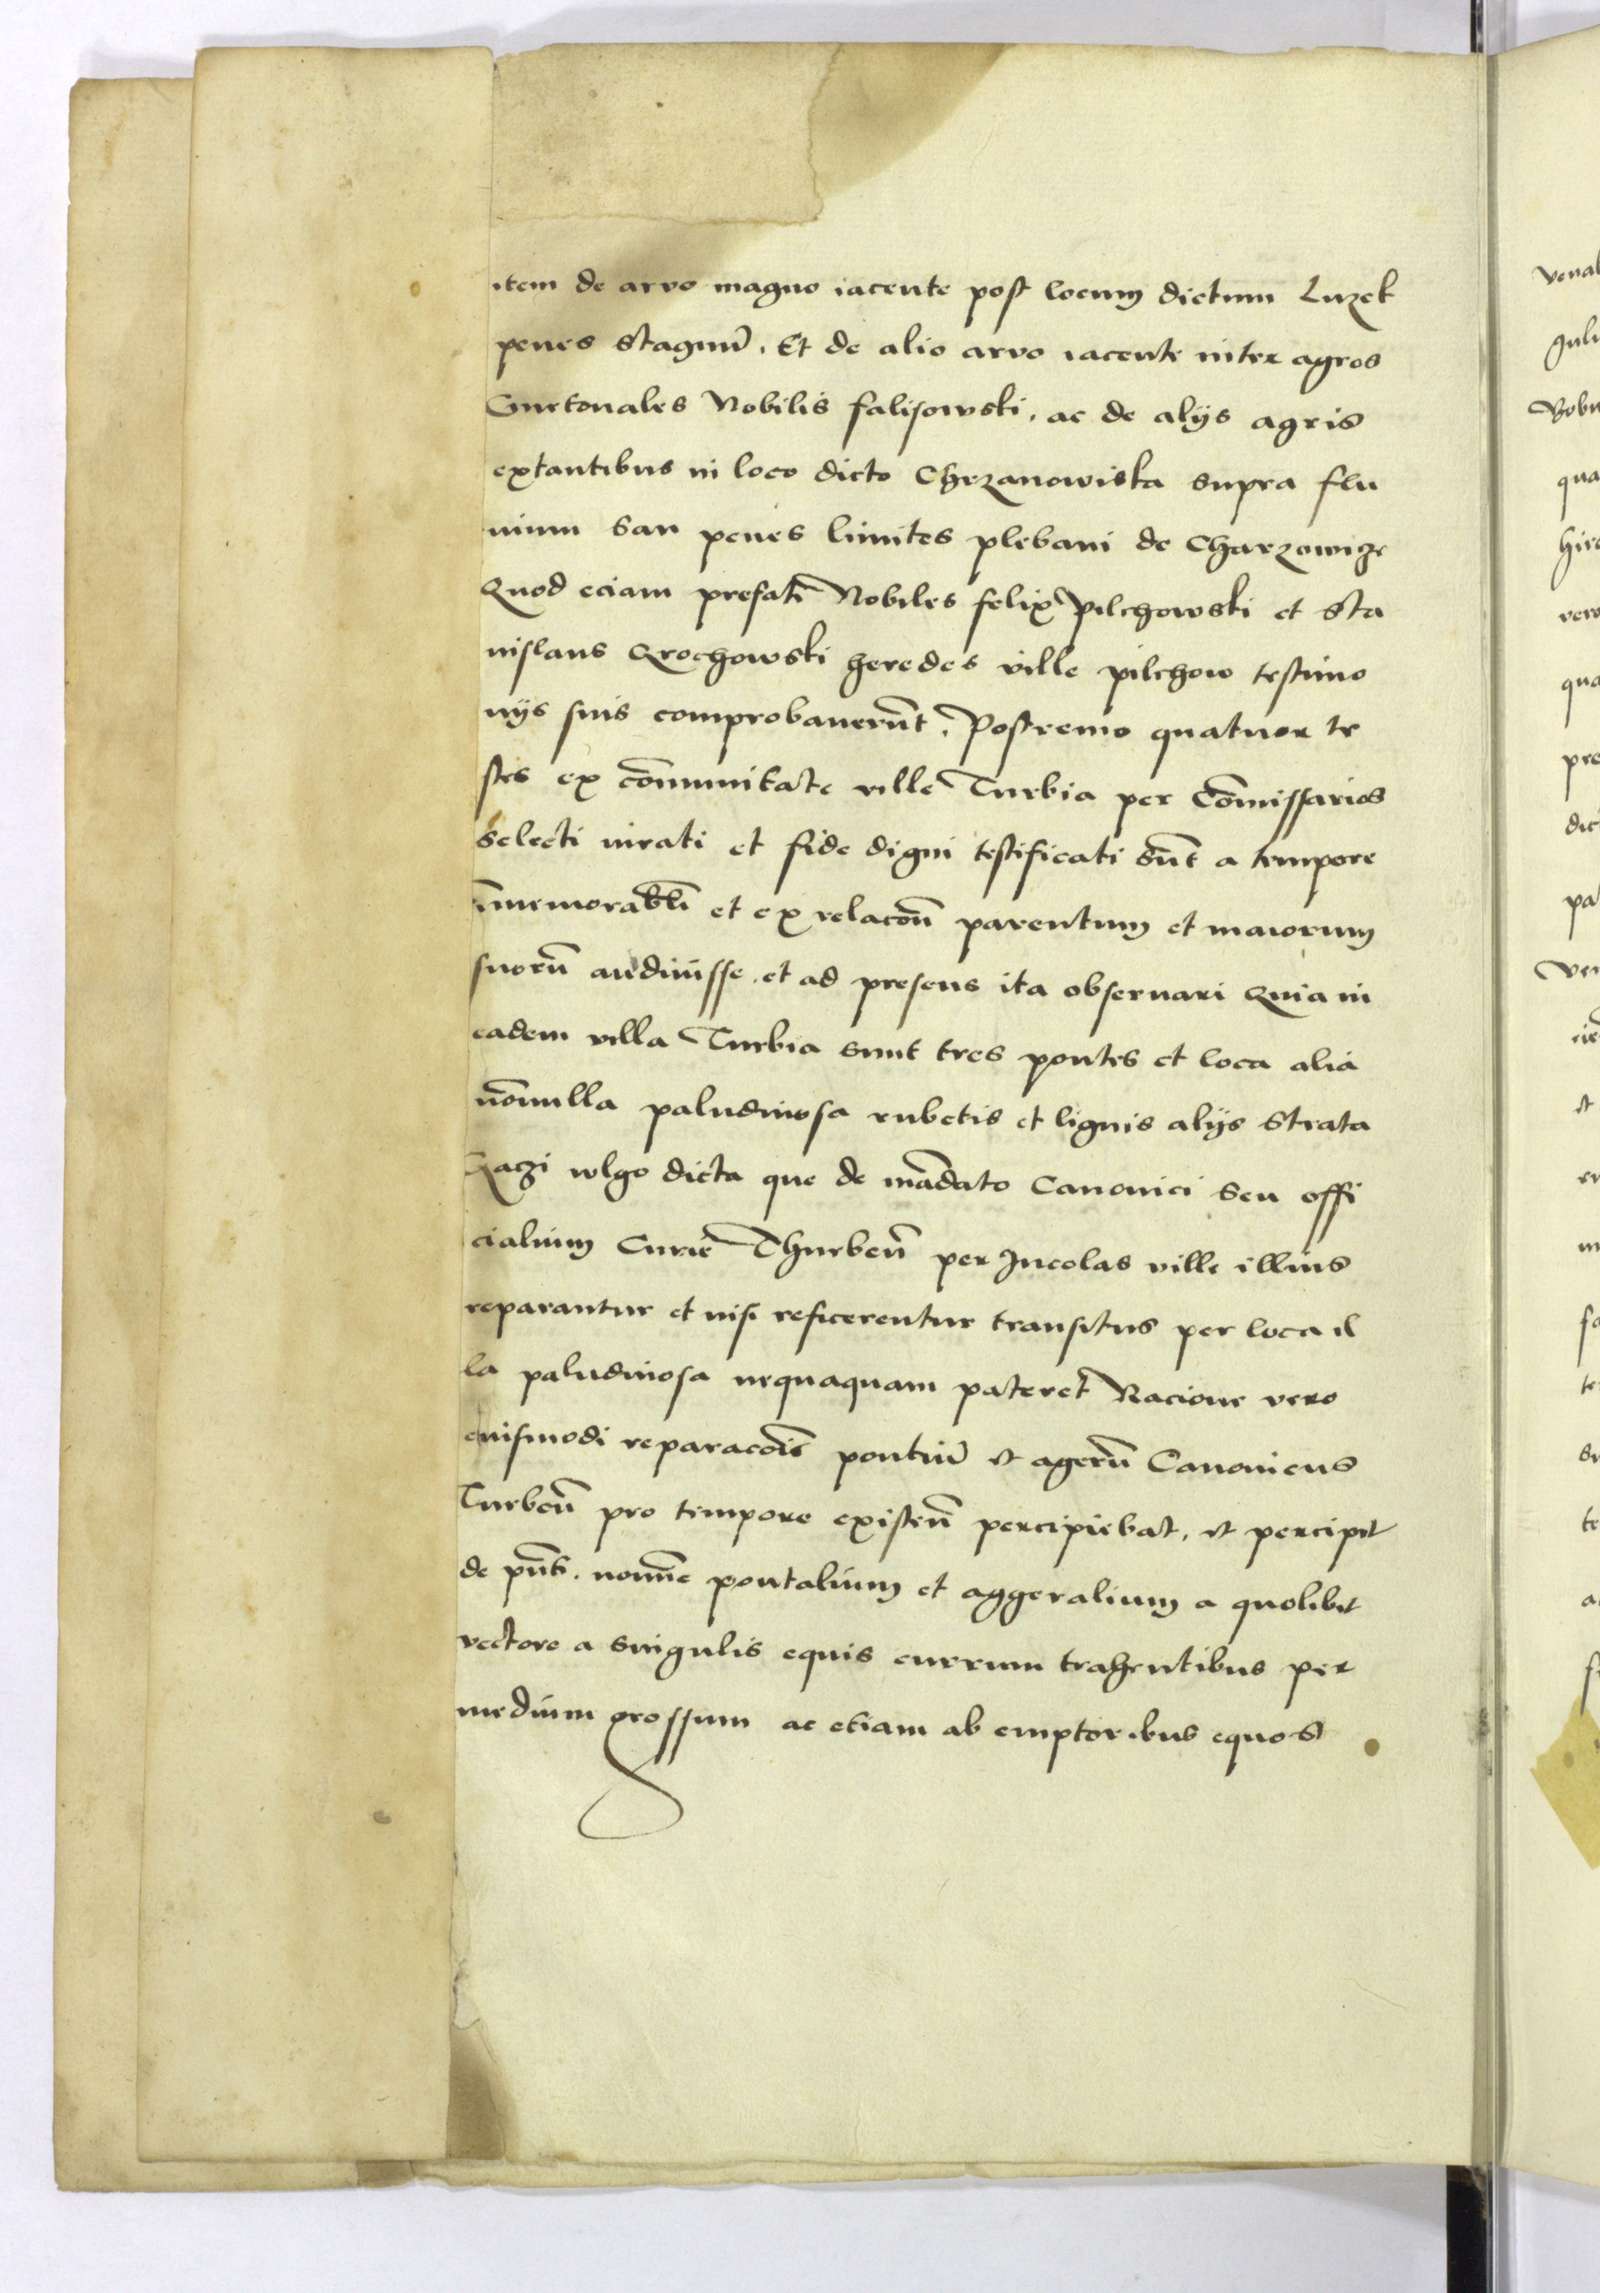 item de arvo magno iacente post locum dictum Luzek
penes stagnū. Et de alio arvo iacente inter agros
Cmetonales Nobilis falisowski. ac de alijs agris
extantibus in loco dicto Chrzanowiska supra flu
uium San penes limites plebani de Charzowicze
Quod eciam prefati Nobiles felix pilchowski et Sta
nislaus Grochowski heredes ville pilchow testimo
nijs suis comprobauerūt. Postremo quatuor te
stes ex cōmunitate ville Turbia per Cōmissarios
selecti iurati et fide digni testificati sūt a tempore
īmemorabli et ex relacoē parentum et maiorum
suorū audiuisse. et ad presens ita obseruari Quia in
eadem villa Turbia sunt tres pontes et loca alia
nōnulla paludinosa rubetis et lignis alijs strata
Gaczi wlgo dicta que de mādato Canonici seu offi
cialium Curie Thurbeñ per Incolas ville illius
reparantur et nisi reficerentur transitus per loca il
la paludinosa nequaquam pateret Racione vero
euismodi reparacōis pontiū et agerū Canonicus
Turbeñ pro tempore existeñ percipiebat. et percipit
de pñti. nomīe pontalium et aggeralium a quolibet
vectore a singulis equis currum trahentibus per
medium grossum ac etiam ab emptoribus equos